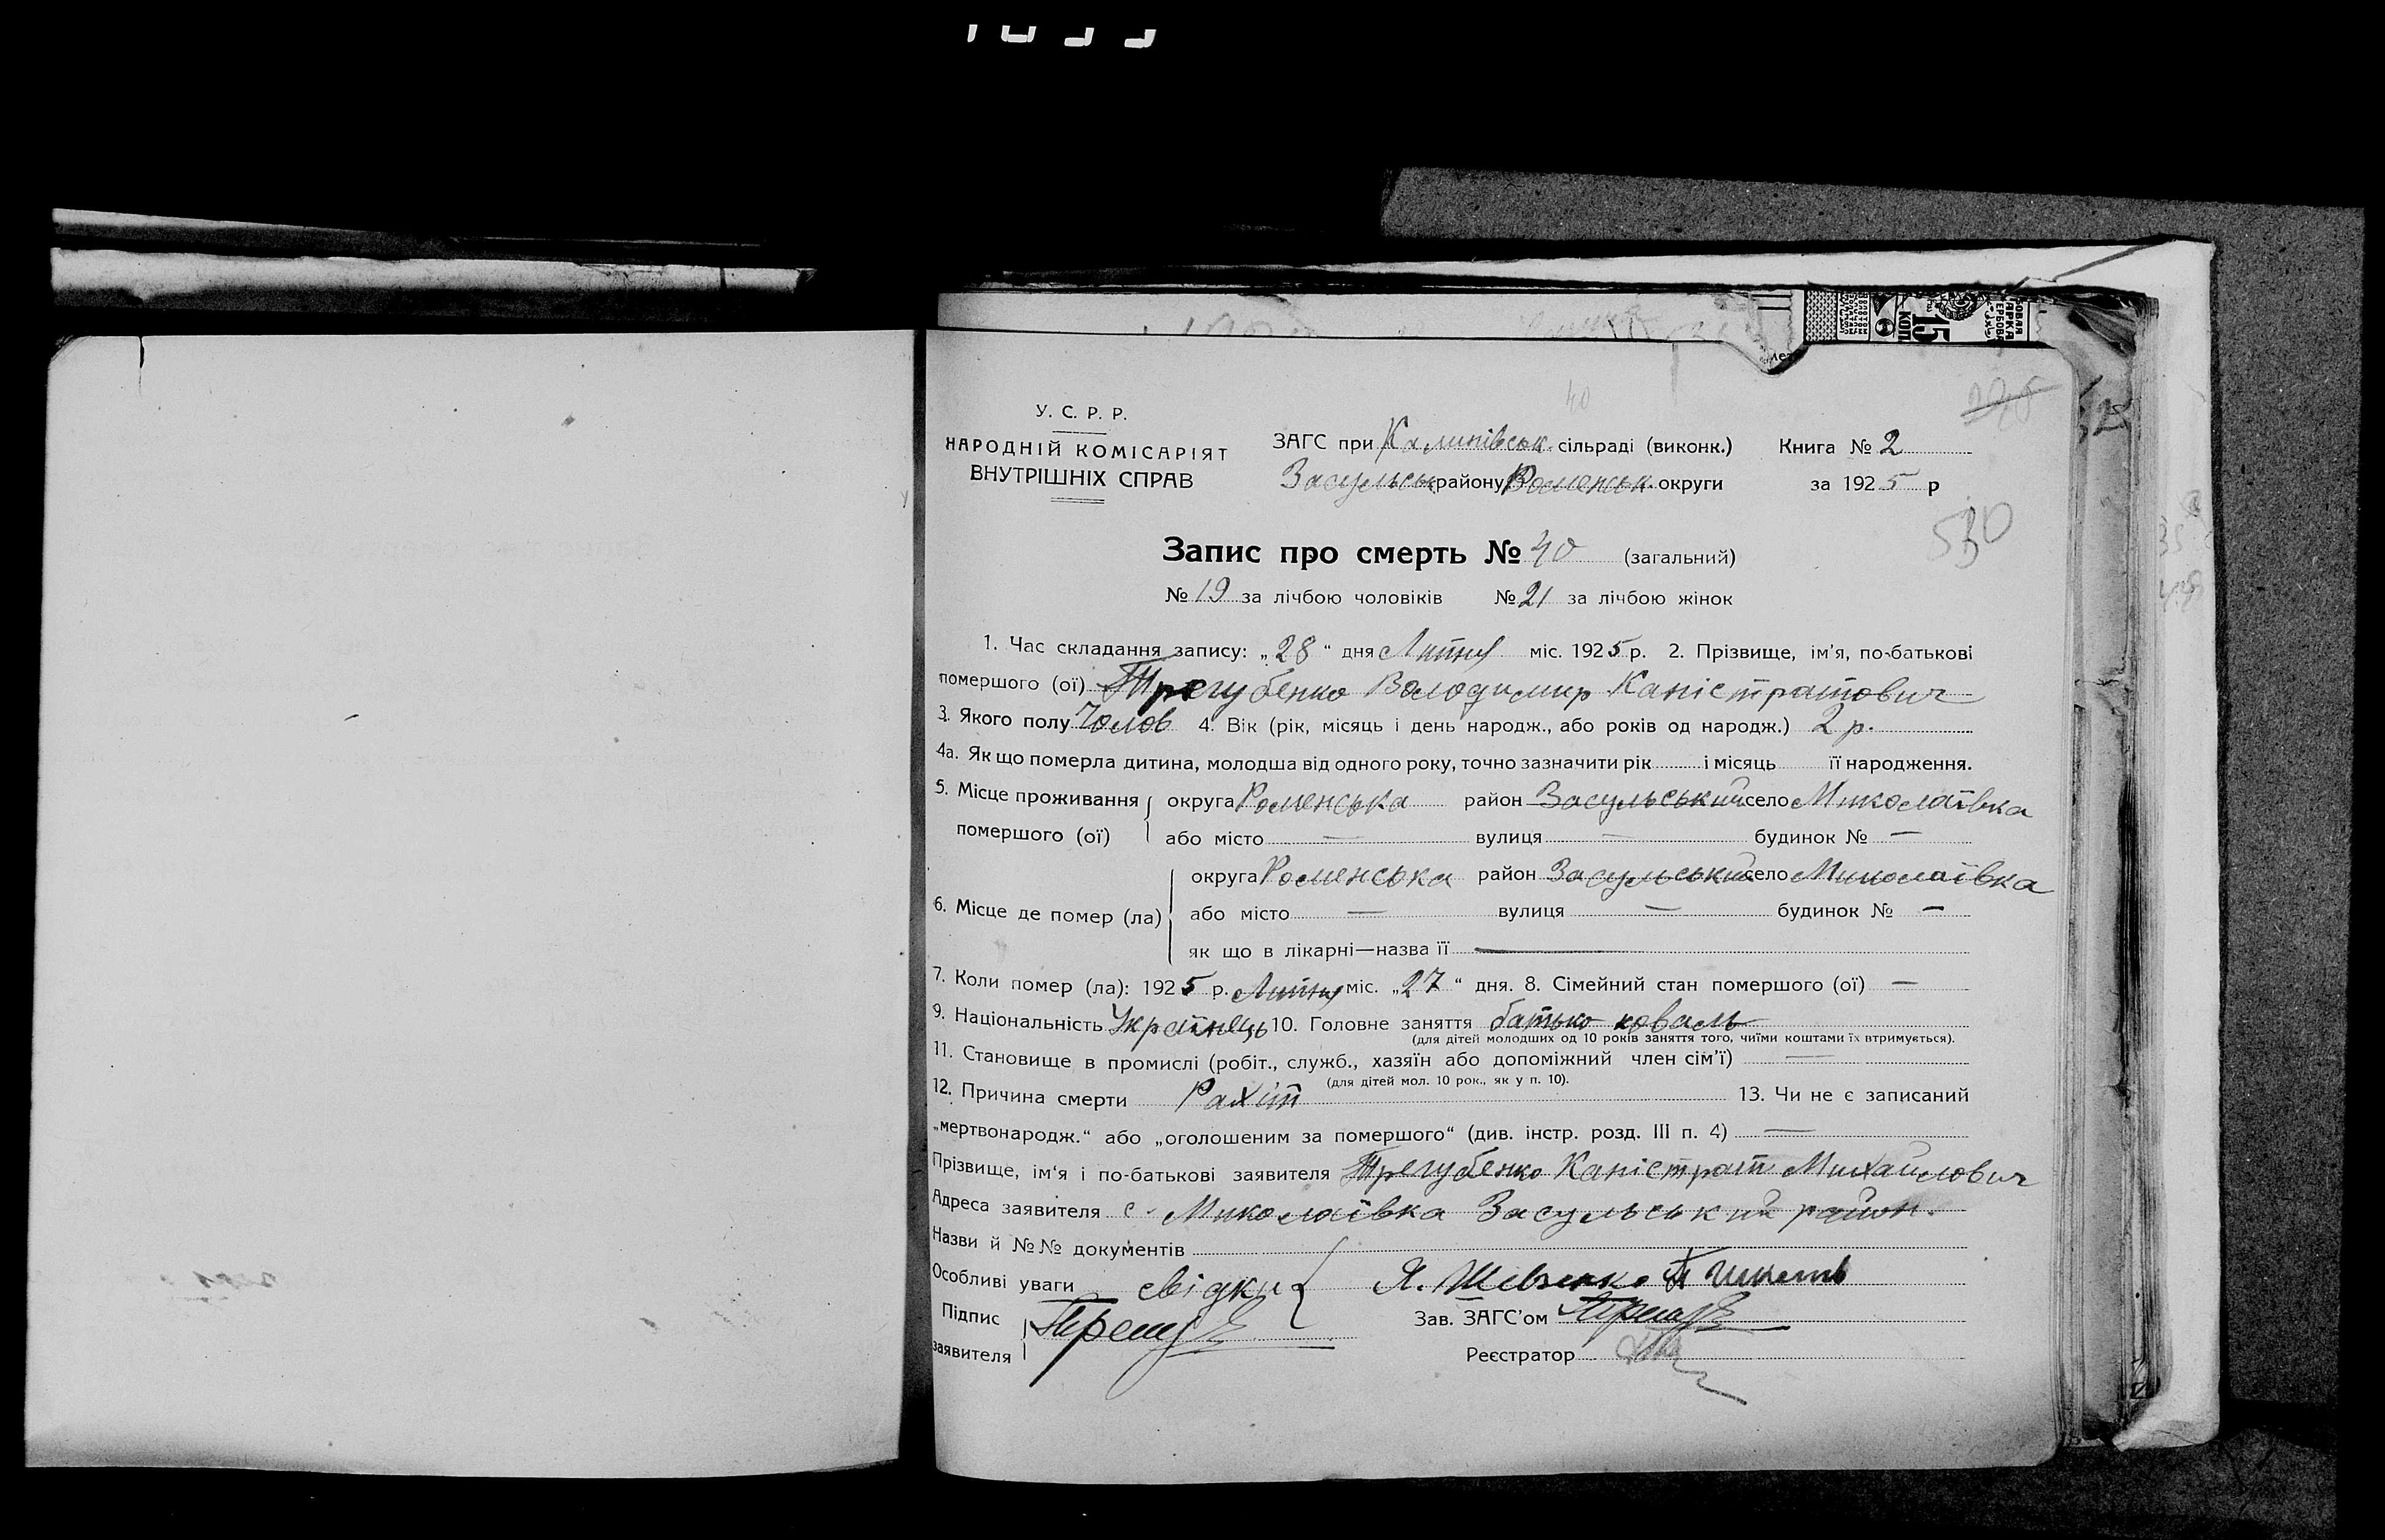 40
У. С. Р. Р.
НАРОДНІЙ КОМІСАРІЯТ
ВНУТРІШНІХ СПРАВ
ЗАГС при Калинівськ. сільраді (виконк.) Книга № 2
Засульськ району Роменськ. округи за 1925 р
530
Запис про смерть № 40 (загальний)
№ 19 за лічбою чоловіків № 21 за лічбою жінок
1. Час складання запису: „28“ дня Липня міс. 1925 р. 2. Прізвище, ім'я, по-батькові
помершого (ої) Трегубенко Володимир Каністратович
3. Якого полу Чолов 4. Вік (рік, місяць і день народж., або років од народж.) 2 р.
4а. Як що померла дитина, молодша від одного року, точно зазначити рік і місяць її народження.
5. Місце проживання помершого (ої) округа Роменська район Засульський село Миколаївка
або місто — вулиця — будинок № —
6. Місце де помер (ла) округа Роменська район Засульський село Миколаївка
або місто — вулиця — будинок № —
як що в лікарні—назва її —
7. Коли помер (ла): 1925 р. Липня міс. „27“ дня. 8. Сімейний стан помершого (ої) —
9. Національність Українець 10. Головне заняття батько коваль
(для дітей молодших од 10 років заняття того, чиїми коштами їх втримується).
11. Становище в промислі (робіт., служб., хазяїн або допоміжний член сім'ї) —
(для дітей мол. 10 рок., як у п. 10).
12. Причина смерти Рахіт 13. Чи не є записаний
„мертвонародж.“ або „оголошеним за помершого“ (див. інстр. розд. III п. 4) —
Прізвище, ім'я і по-батькові заявителя Трегубенко Каністрат Михайлович
Адреса заявителя с. Миколаївка Засульський район.
Назви й №№ документів
Особливі уваги свідки { Я. Шевченко
Підпис заявителя
Зав. ЗАГС'ом
Реєстратор
15 КОП